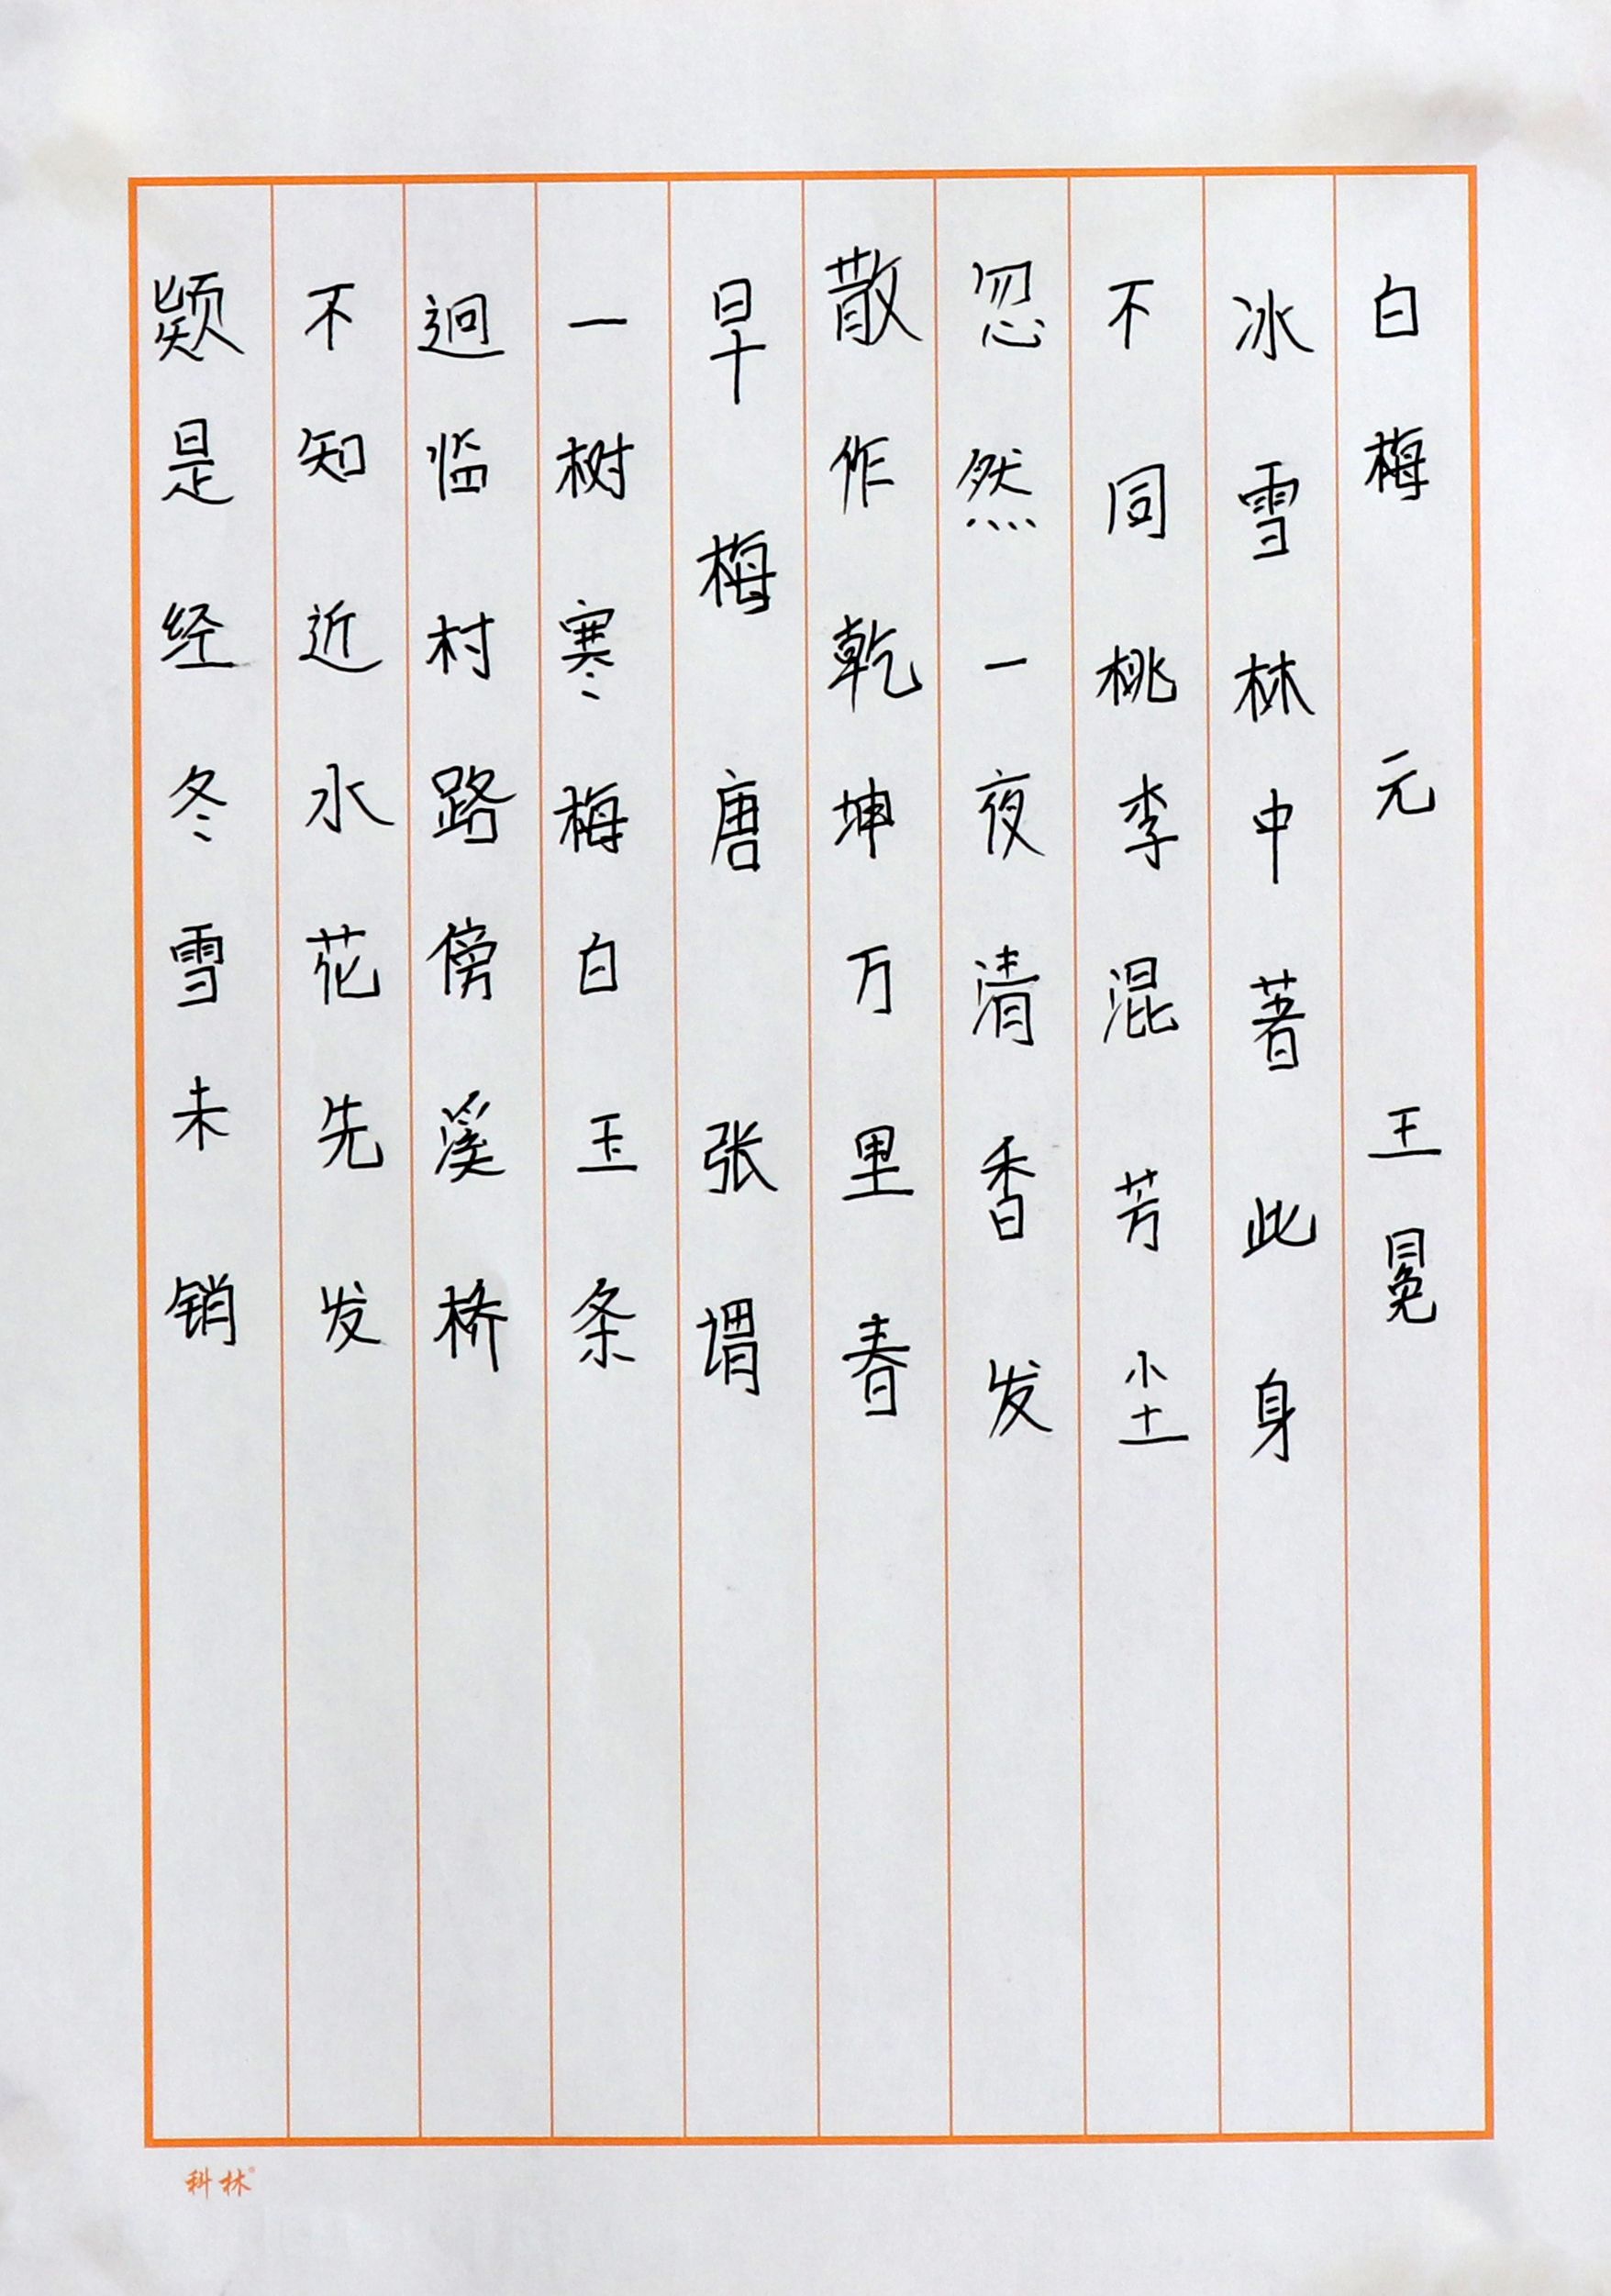 白梅 元 王冕
冰雪林中著此身
不同桃李混芳尘
忽然一夜清香发
散作乾坤万里春
早梅 唐 张谓
一树寒梅白玉条
迥临村路傍溪桥
不知近水花先发
颢是经冬雪未销
科林